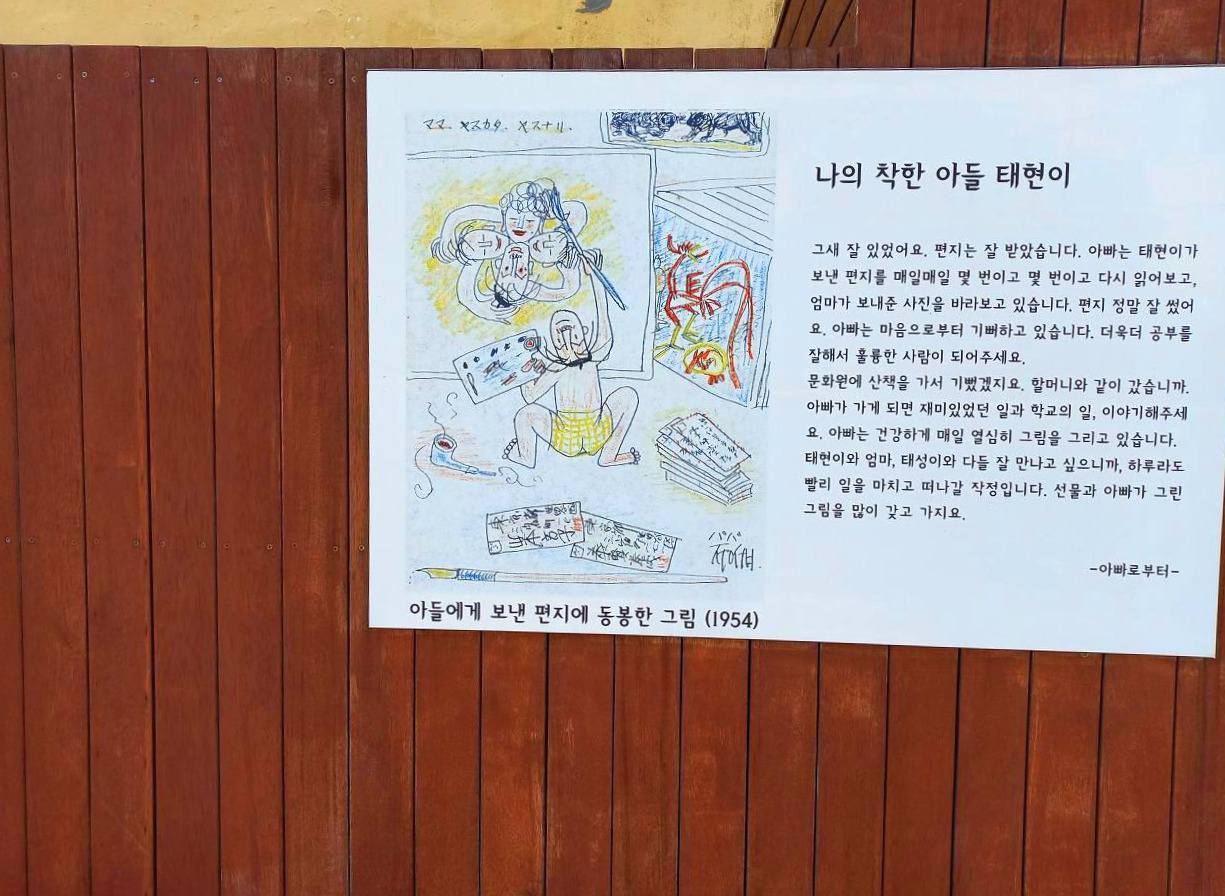 ママ. ヤスカタ. ヤスナリ.
パパ
아들에게 보낸 편지에 동봉한 그림 (1954)
나의 착한 아들 태현이
그새 잘 있었어요. 편지는 잘 받았습니다. 아빠는 태현이가
보낸 편지를 매일매일 몇 번이고 몇 번이고 다시 읽어보고,
엄마가 보내준 사진을 바라보고 있습니다. 편지 정말 잘 썼어
요. 아빠는 마음으로부터 기뻐하고 있습니다. 더욱더 공부를
잘해서 훌륭한 사람이 되어주세요.
문화원에 산책을 가서 기뻤겠지요. 할머니와 같이 갔습니까.
아빠가 가게 되면 재미있었던 일과 학교의 일, 이야기해주세
요. 아빠는 건강하게 매일 열심히 그림을 그리고 있습니다.
태현이와 엄마, 태성이와 다들 잘 만나고 싶으니까, 하루라도
빨리 일을 마치고 떠나갈 작정입니다. 선물과 아빠가 그린
그림을 많이 갖고 가지요.
-아빠로부터-